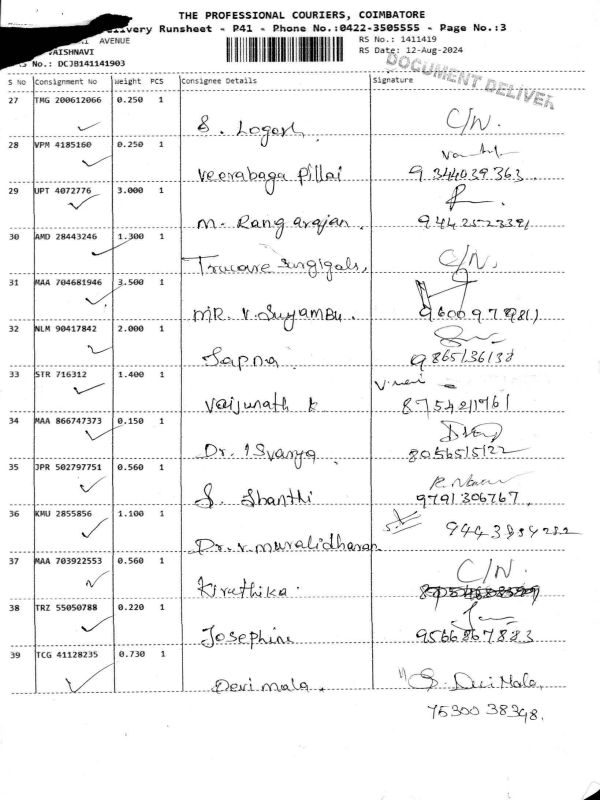 THE PROFESSIONAL COURIERS, COIMBATORE
Delivery Runsheet - P41 - Phone No.:0422-3505555 - Page No.:3
AVENUE
RS No.: 1411419
VAISHNAVI
RS Date: 12-Aug-2024
No.: DCJB141141903
DOCUMENT DELIVER
S No Consignment No Weight PCS Consignee Details Signature
27 TMG 200612066 0.250 1
S. Logesh C/N.
28 VPM 4185160 0.250 1
Veerabaga Pillai 9344039363
29 UPT 4072776 3.000 1
M. Rangarajan. 9442523391
30 AMD 28443246 1.300 1
Trucare surgigals, C/N,
31 MAA 704681946 3.500 1
MR. V. Suyambu.
32 NLM 90417842 2.000 1
Sapna 9865136138
33 STR 716312 1.400 1
Vaijunath k 8754211961
34 MAA 866747373 0.150 1
Dr. ISvarya. 8056515122
35 JPR 502797751 0.560 1
S. Shanthi 9791306767.
36 KMU 2855856 1.100 1
Dr. V. Muralidharan
37 MAA 703922553 0.560 1
Kiruthika. C/N.
38 TRZ 55050788 0.220 1
Josephine 9566867883
39 TCG 41128235 0.730 1
Devi mala. S. Devi Mala,
75300 38398.